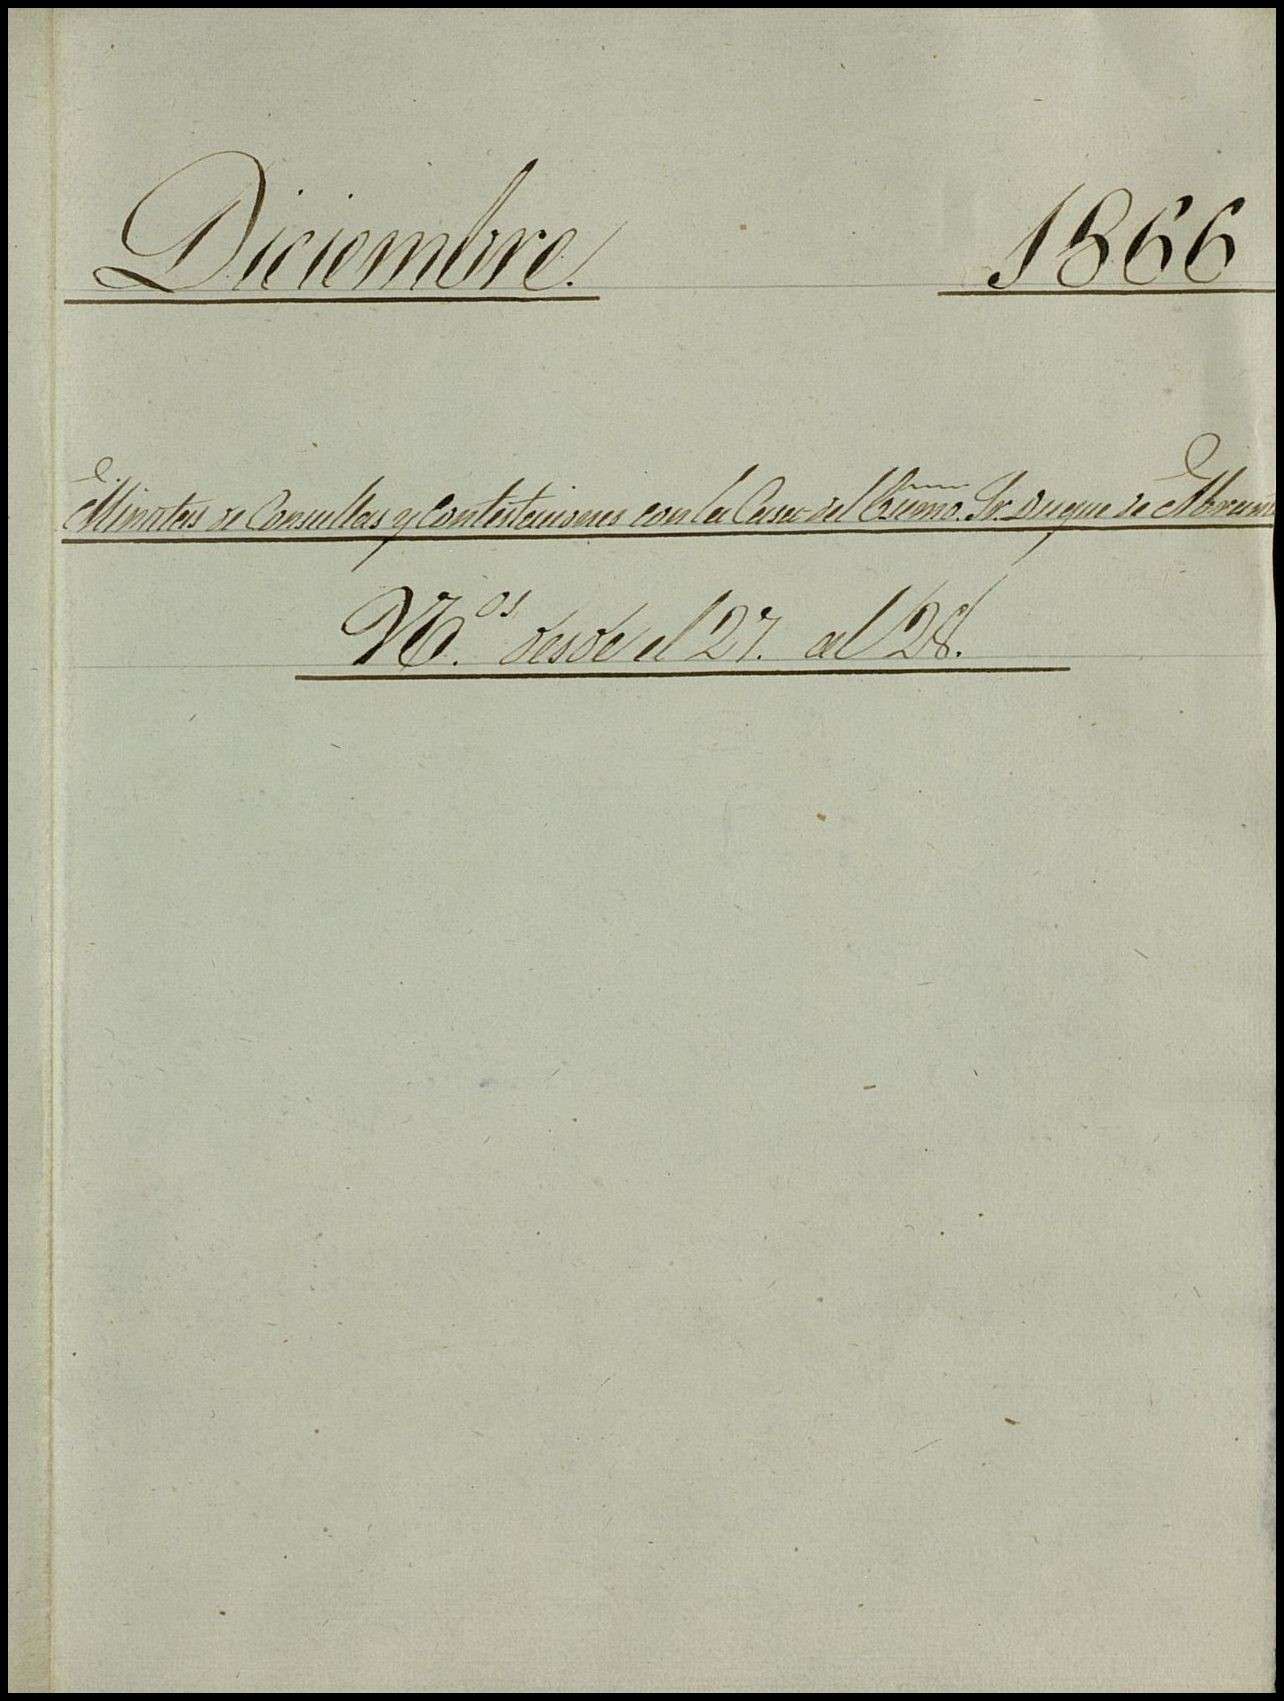 Diciembre. 1866
Minutas de Consultas y Contestaciones con la Casa del Excmo. Sr. Duque de
N.os desde el 27. al 28.